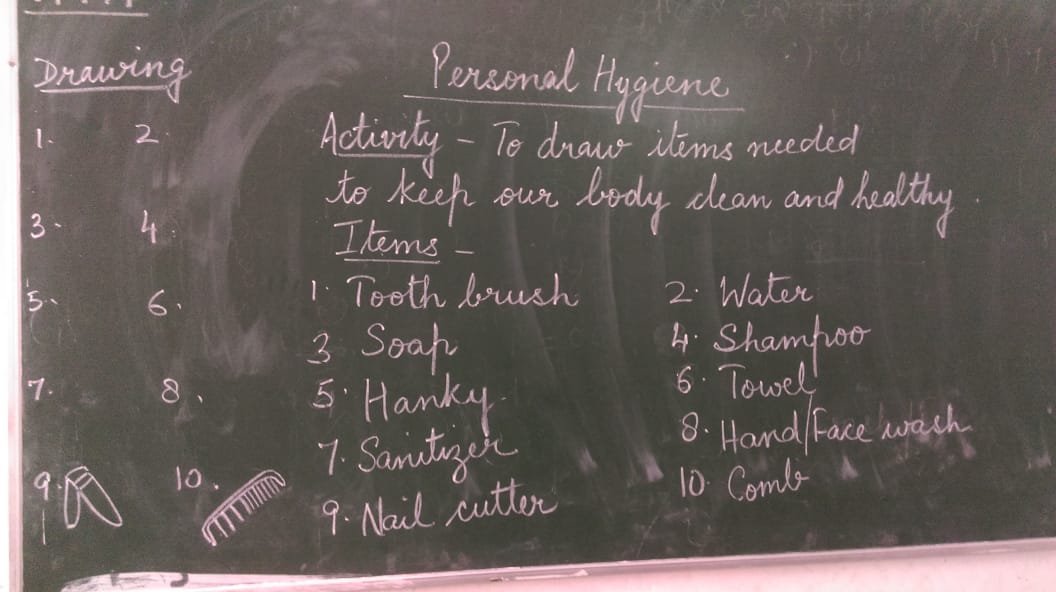 Drawing
1. 2.
3. 4.
5. 6.
7. 8.
9. 10.
Personal Hygiene
Activity - To draw items needed
to keep our body clean and healthy.
Items -
1. Tooth brush 2. Water
3 Soap 4. Shampoo
5. Hanky. 6. Towel
7. Sanitizer 8. Hand/Face wash
9. Nail cutter 10. Comb